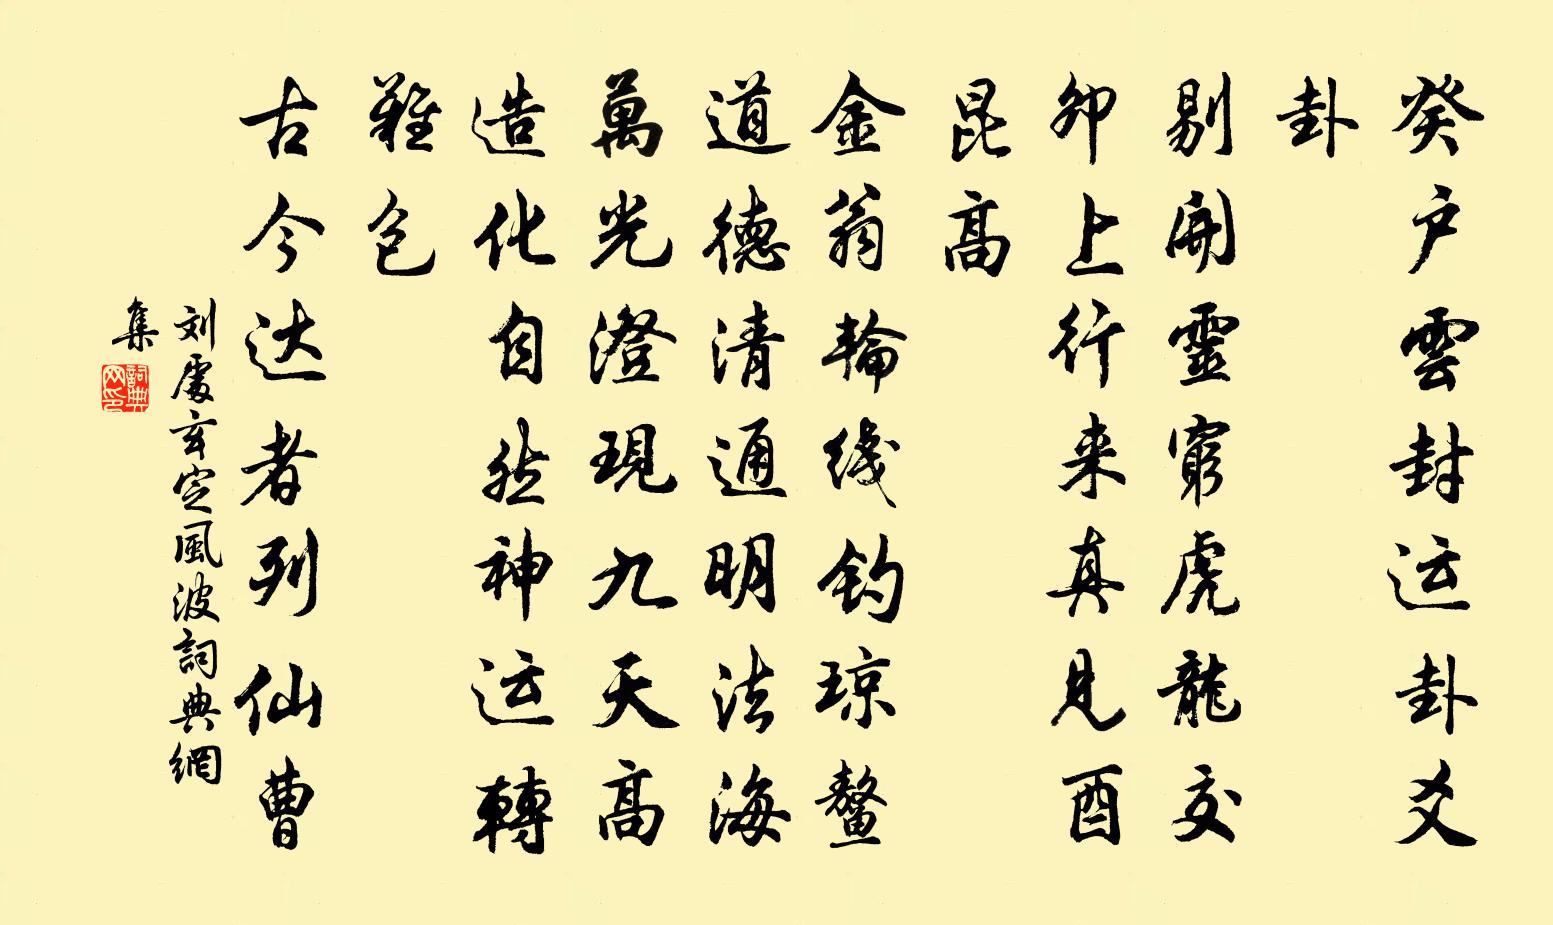 癸户雲封运卦爻
卦
剔開靈窮虎龍交
卯上行来真見酉
昆高
金翁輪线钓琼鳌
道德清通明法海
萬光澄現九天高
造化自然神运轉
難包
古今达者列仙曹
刘處玄定風波詞典網
集
詞典網印